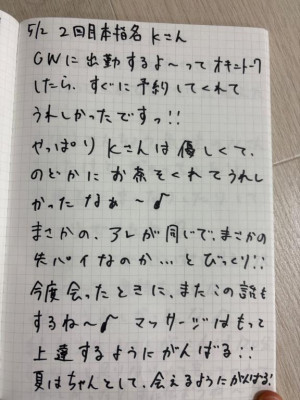 5/2 2回目本指名 Kさん
GWに出勤するよ〜って オキニトーク
したら、すぐに予約してくれて
うれしかったですっ!!
やっぱり Kさんは優しくて、
のどかに お茶をくれてうれし
かったなぁ〜♪
まさかの、アレが同じで、まさかの
失パイなのか…とびっくり!!
今度会ったときに、またこの話も
するね〜♪ マッサージはもって
上達するようにがんばる!!
夏はちゃんとして、会えるようにがんばる!